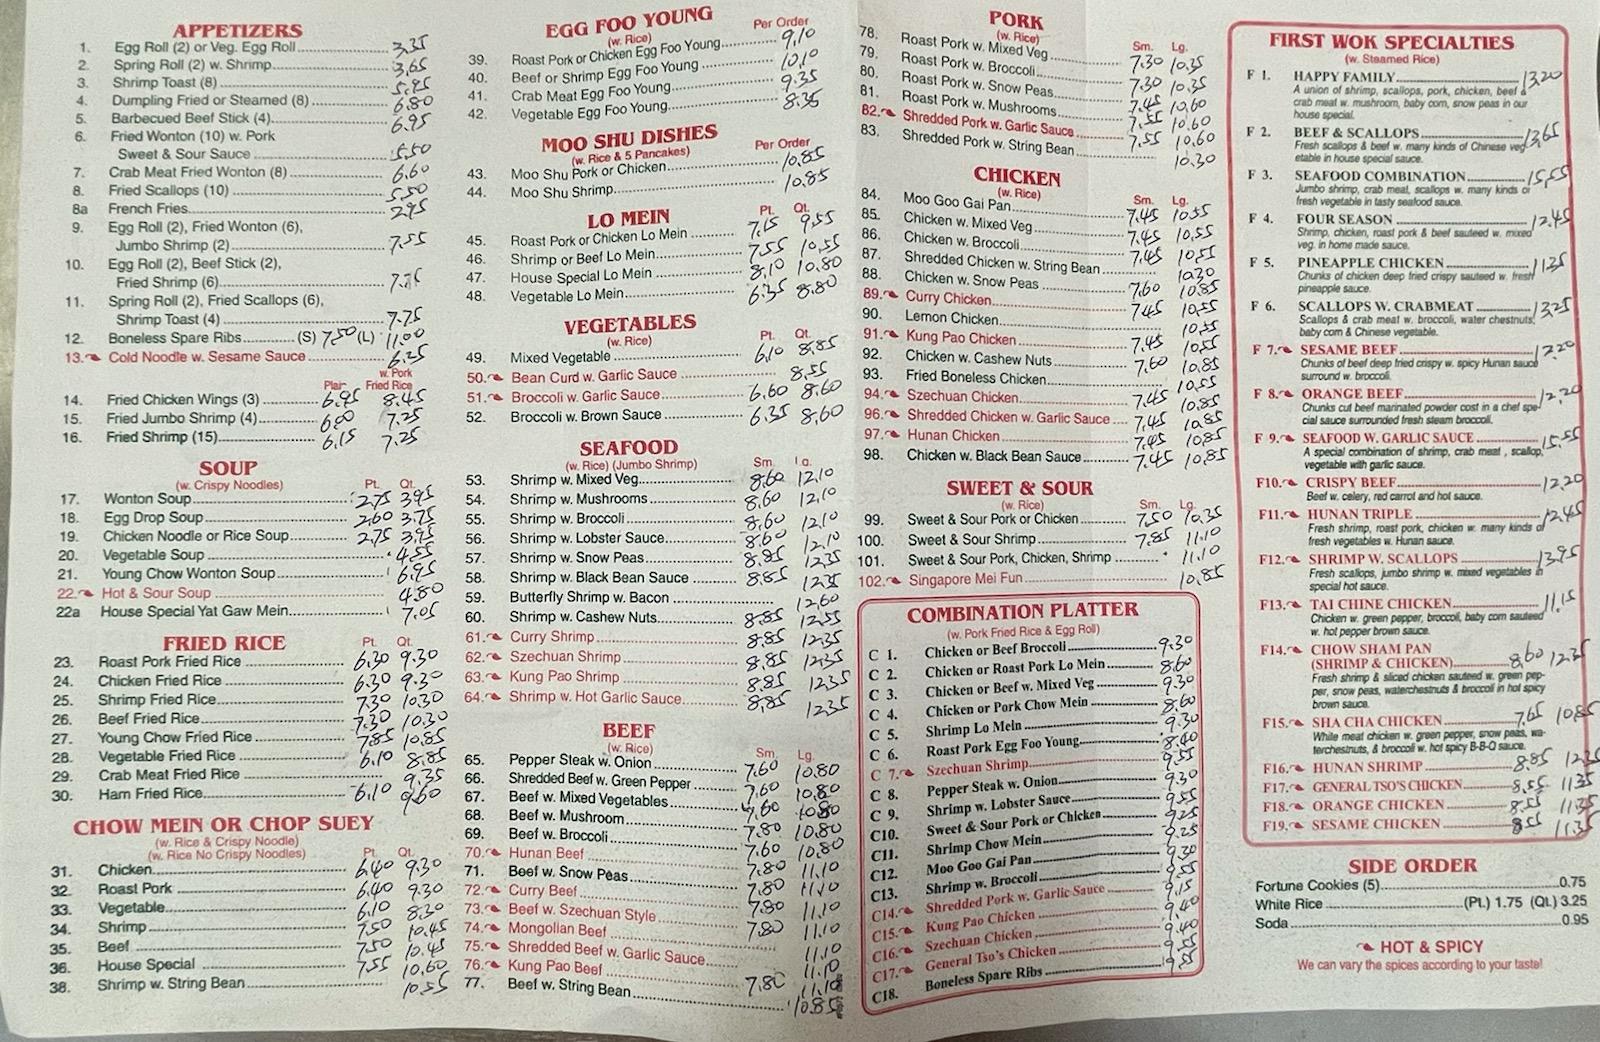 APPETIZERS
1. Egg Roll (2) or Veg. Egg Roll 3,35
2. Spring Roll (2) w. Shrimp 3,65
3. Shrimp Toast (8) 5.95
4. Dumpling Fried or Steamed (8) 6.80
5. Barbecued Beef Stick (4) 6.95
6. Fried Wonton (10) w. Pork
Sweet & Sour Sauce 5.50
7. Crab Meat Fried Wonton (8) 6.60
8. Fried Scallops (10) 5.50
8a French Fries 2.95
9. Egg Roll (2), Fried Wonton (6),
Jumbo Shrimp (2) 7.55
10. Egg Roll (2), Beef Stick (2),
Fried Shrimp (6)
11. Spring Roll (2), Fried Scallops (6),
Shrimp Toast (4) 7.75
12. Boneless Spare Ribs (S) 7.50 (L) 11.00
13. Cold Noodle w. Sesame Sauce 6.25
w. Pork
Plain Fried Rice
14. Fried Chicken Wings (3) 6.95 8.45
15. Fried Jumbo Shrimp (4) 6.00 7.25
16. Fried Shrimp (15) 6.15 7.25
SOUP
(w. Crispy Noodles) Pt. Qt.
17. Wonton Soup 2.75 3.95
18. Egg Drop Soup 2.60 3.75
19. Chicken Noodle or Rice Soup 2.75 3.95
20. Vegetable Soup 4.55
21. Young Chow Wonton Soup 6.95
22. Hot & Sour Soup 4.80
22a House Special Yat Gaw Mein 7.05
FRIED RICE Pt. Qt.
23. Roast Pork Fried Rice 6.30 9.30
24. Chicken Fried Rice 6.30 9.30
25. Shrimp Fried Rice 7.30 10.30
26. Beef Fried Rice 7.30 10.30
27. Young Chow Fried Rice 7.85 10.85
28. Vegetable Fried Rice 6.10 8.85
29. Crab Meat Fried Rice 9.35
30. Ham Fried Rice 6.10 9.60
CHOW MEIN OR CHOP SUEY
(w. Rice & Crispy Noodle)
(w. Rice No Crispy Noodles) Pt. Qt.
31. Chicken 6.40 9.30
32. Roast Pork 6.40 9.30
33. Vegetable 6.10 8.30
34. Shrimp 7.50 10.45
35. Beef 7.50 10.45
36. House Special 7.55 10.60
38. Shrimp w. String Bean 10.55
EGG FOO YOUNG
(w. Rice) Per Order
39. Roast Pork or Chicken Egg Foo Young 9,10
40. Beef or Shrimp Egg Foo Young 10,10
41. Crab Meat Egg Foo Young 9.35
42. Vegetable Egg Foo Young 8.35
MOO SHU DISHES
(w. Rice & 5 Pancakes) Per Order
43. Moo Shu Pork or Chicken 10.85
44. Moo Shu Shrimp 10.85
LO MEIN Pt. Qt.
45. Roast Pork or Chicken Lo Mein 7.15 9.55
46. Shrimp or Beef Lo Mein 7.55 10.55
47. House Special Lo Mein 8.10 10.80
48. Vegetable Lo Mein 6.35 8.80
VEGETABLES
(w. Rice) Pt. Qt.
49. Mixed Vegetable 6.10 8.85
50. Bean Curd w. Garlic Sauce 8.55
51. Broccoli w. Garlic Sauce 6.60 8.60
52. Broccoli w. Brown Sauce 6.35 8,60
SEAFOOD
(w. Rice) (Jumbo Shrimp) Sm. Lg.
53. Shrimp w. Mixed Veg. 8.60 12.10
54. Shrimp w. Mushrooms 8.60 12.10
55. Shrimp w. Broccoli 8.60 12.10
56. Shrimp w. Lobster Sauce 8.60 12.10
57. Shrimp w. Snow Peas 8.85 12.35
58. Shrimp w. Black Bean Sauce 8.85 12.35
59. Butterfly Shrimp w. Bacon 12.60
60. Shrimp w. Cashew Nuts 8.85 12.55
61. Curry Shrimp 8.85 12.35
62. Szechuan Shrimp 8.85 12.35
63. Kung Pao Shrimp 8.85 12.35
64. Shrimp w. Hot Garlic Sauce 8.85 12.35
BEEF
(w. Rice) Sm. Lg.
65. Pepper Steak w. Onion 7.60 10.80
66. Shredded Beef w. Green Pepper 7.60 10.80
67. Beef w. Mixed Vegetables 7.60 10.80
68. Beef w. Mushroom 7.80 10.80
69. Beef w. Broccoli 7.60 10.80
70. Hunan Beef 7.80 11.10
71. Beef w. Snow Peas 7.80 11.10
72. Curry Beef 7.80 11.10
73. Beef w. Szechuan Style 7.80 11.10
74. Mongolian Beef 11.10
75. Shredded Beef w. Garlic Sauce 11.10
76. Kung Pao Beef 7.80 11.10
77. Beef w. String Bean 10.85
PORK
(w. Rice) Sm. Lg.
78. Roast Pork w. Mixed Veg 7.30 10.35
79. Roast Pork w. Broccoli 7.30 10.35
80. Roast Pork w. Snow Peas 7.45 10.60
81. Roast Pork w. Mushrooms 7.55 10.60
82. Shredded Pork w. Garlic Sauce 7.55 10.60
83. Shredded Pork w. String Bean 10.30
CHICKEN
(w. Rice) Sm. Lg.
84. Moo Goo Gai Pan 7.45 10.55
85. Chicken w. Mixed Veg 7.45 10.55
86. Chicken w. Broccoli 7.45 10.55
87. Shredded Chicken w. String Bean 10.30
88. Chicken w. Snow Peas 7.60 10.85
89. Curry Chicken 7.45 10.55
90. Lemon Chicken 10.55
91. Kung Pao Chicken 7.45 10.55
92. Chicken w. Cashew Nuts 7.60 10.85
93. Fried Boneless Chicken 10.55
94. Szechuan Chicken 7.45 10.85
96. Shredded Chicken w. Garlic Sauce 7.45 10.85
97. Hunan Chicken 7.45 10.85
98. Chicken w. Black Bean Sauce 7.45 10.85
SWEET & SOUR
(w. Rice) Sm. Lg.
99. Sweet & Sour Pork or Chicken 7.50 10.35
100. Sweet & Sour Shrimp 7.85 11.10
101. Sweet & Sour Pork, Chicken, Shrimp 11.10
102. Singapore Mei Fun 10.85
COMBINATION PLATTER
(w. Pork Fried Rice & Egg Roll)
C 1. Chicken or Beef Broccoli 9.30
C 2. Chicken or Roast Pork Lo Mein 8.60
C 3. Chicken or Beef w. Mixed Veg 9.30
C 4. Chicken or Pork Chow Mein 8.60
C 5. Shrimp Lo Mein 9.30
C 6. Roast Pork Egg Foo Young 8.40
C 7. Szechuan Shrimp 9.55
C 8. Pepper Steak w. Onion 9.30
C 9. Shrimp w. Lobster Sauce 9.55
C10. Sweet & Sour Pork or Chicken 9.25
C11. Shrimp Chow Mein 9.25
C12. Moo Goo Gai Pan 9.30
C13. Shrimp w. Broccoli 9.55
C14. Shredded Pork w. Garlic Sauce 9.15
C15. Kung Pao Chicken 9.40
C16. Szechuan Chicken 9.40
C17. General Tso's Chicken 9.55
C18. Boneless Spare Ribs 9.55
FIRST WOK SPECIALTIES
(w. Steamed Rice)
F 1. HAPPY FAMILY 13.20
A union of shrimp, scallops, pork, chicken, beef &
crab meat w. mushroom, baby corn, snow peas in our
house special.
F 2. BEEF & SCALLOPS 13.65
Fresh scallops & beef w. many kinds of Chinese veg-
etable in house special sauce.
F 3. SEAFOOD COMBINATION 15.55
Jumbo shrimp, crab meat, scallops w. many kinds of
fresh vegetable in tasty seafood sauce.
F 4. FOUR SEASON 12.45
Shrimp, chicken, roast pork & beef sauteed w. mixed
veg. in home made sauce.
F 5. PINEAPPLE CHICKEN 11.35
Chunks of chicken deep fried crispy sauteed w. fresh
pineapple sauce.
F 6. SCALLOPS W. CRABMEAT 13.25
Scallops & crab meat w. broccoli, water chestnuts,
baby corn & Chinese vegetable.
F 7. SESAME BEEF 12.20
Chunks of beef deep fried crispy w. spicy Hunan sauce
surround w. broccoli.
F 8. ORANGE BEEF 12.20
Chunks cut beef marinated powder cost in a chef spe-
cial sauce surrounded fresh steam broccoli.
F 9. SEAFOOD W. GARLIC SAUCE 15.55
A special combination of shrimp, crab meat, scallop,
vegetable with garlic sauce.
F10. CRISPY BEEF 12.20
Beef w. celery, red carrot and hot sauce.
F11. HUNAN TRIPLE 12.45
Fresh shrimp, roast pork, chicken w. many kinds of
fresh vegetables w. Hunan sauce.
F12. SHRIMP W. SCALLOPS 13.95
Fresh scallops, jumbo shrimp w. mixed vegetables in
special hot sauce.
F13. TAI CHINE CHICKEN 11.15
Chicken w. green pepper, broccoli, baby corn sauteed
w. hot pepper brown sauce.
F14. CHOW SHAM PAN
(SHRIMP & CHICKEN) 8.60 12.35
Fresh shrimp & sliced chicken sauteed w. green pep-
per, snow peas, waterchestnuts & broccoli in hot spicy
brown sauce.
F15. SHA CHA CHICKEN 7.65 10.85
White meat chicken w. green pepper, snow peas, wa-
terchestnuts, & broccoli w. hot spicy B-B-Q sauce.
F16. HUNAN SHRIMP 8.85 12.35
F17. GENERAL TSO'S CHICKEN 8.55 11.35
F18. ORANGE CHICKEN 8.55 11.35
F19. SESAME CHICKEN 8.55 11.35
SIDE ORDER
Fortune Cookies (5) 0.75
White Rice (Pt.) 1.75 (Qt.) 3.25
Soda 0.95
HOT & SPICY
We can vary the spices according to your taste!